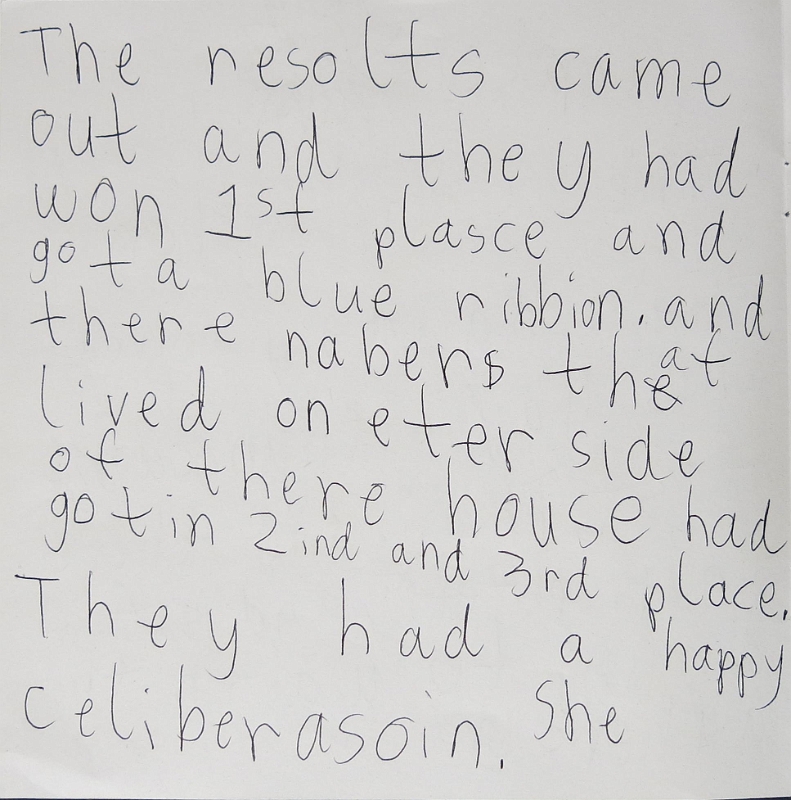 The resolts came
out and they had
won 1st plasce and
got a blue ribbion. and
there nabers that
lived on eter side
of there house had
got in 2ind and 3rd place.
They had a happy
celiberasoin. She